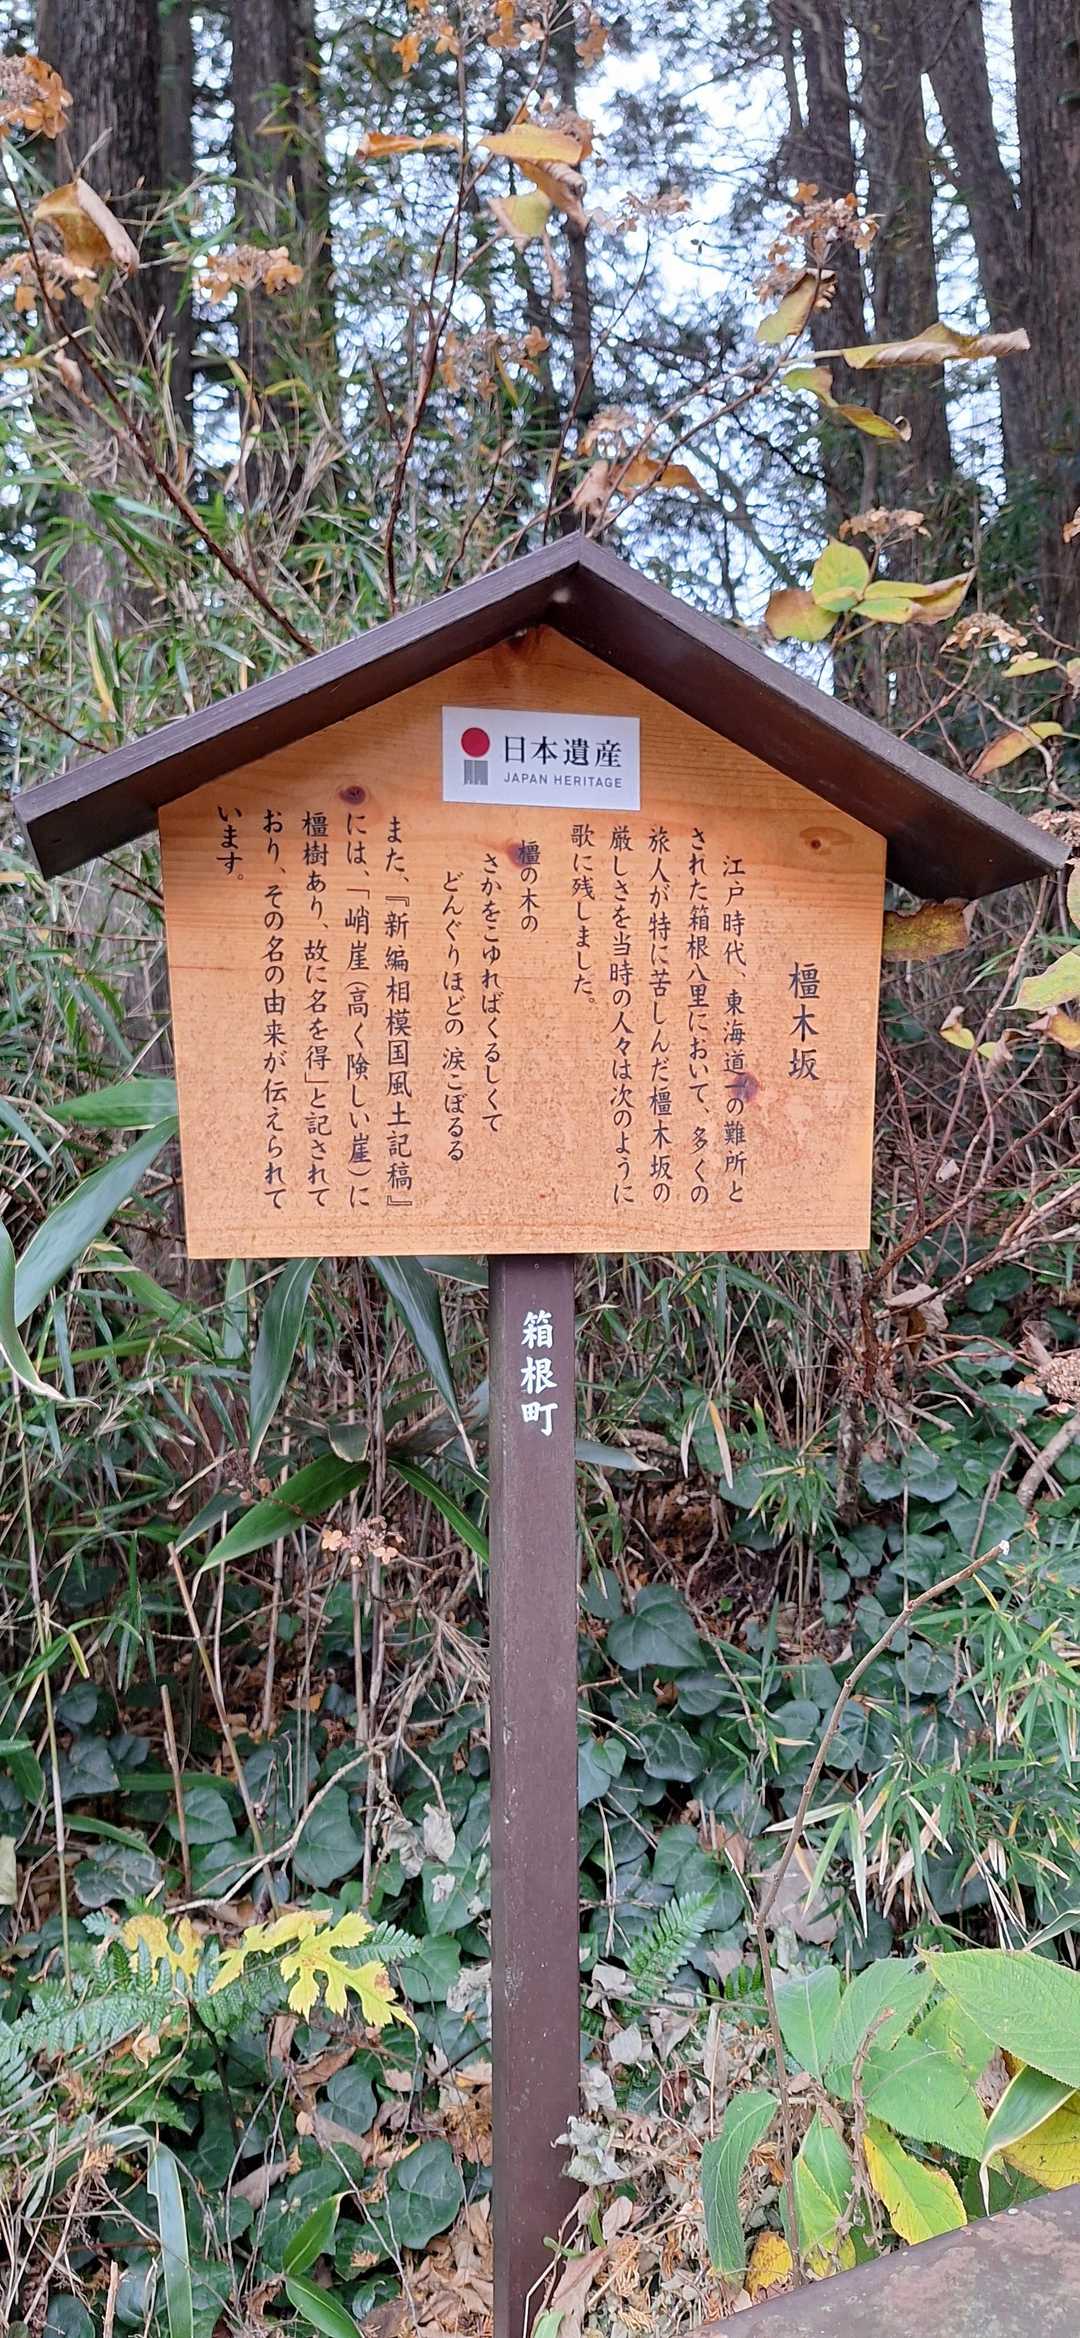 日本遺産
JAPAN HERITAGE
橿木坂
江戸時代、東海道一の難所と
された箱根八里において、多くの
旅人が特に苦しんだ橿木坂の
厳しさを当時の人々は次のように
歌に残しました。
橿の木の
さかをこゆればくるしくて
どんぐりほどの 涙こぼるる
また、『新編相模国風土記稿』
には、「峭崖(高く険しい崖)に
橿樹あり、故に名を得」と記されて
おり、その名の由来が伝えられて
います。
箱根町